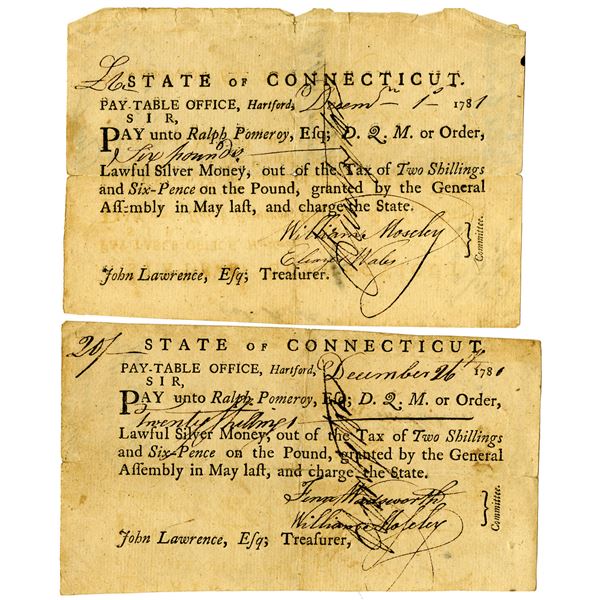 £6 STATE OF CONNECTICUT.
PAY-TABLE OFFICE, Hartford, Decemr 1st 1781
SIR,
PAY unto Ralph Pomeroy, Esq; D. Q. M. or Order,
Six pounds
Lawful Silver Money, out of the Tax of Two Shillings
and Six-Pence on the Pound, granted by the General
Assembly in May last, and charge the State.
William Moseley
Eleazr Wales
Committee.
John Lawrence, Esq; Treasurer.
20/ STATE OF CONNECTICUT.
PAY-TABLE OFFICE, Hartford, December 26th 1781
SIR,
PAY unto Ralph Pomeroy, Esq; D. Q. M. or Order,
Twenty Shillings
Lawful Silver Money, out of the Tax of Two Shillings
and Six-Pence on the Pound, granted by the General
Assembly in May last, and charge the State.
Wadsworth
William Moseley
Committee.
John Lawrence, Esq; Treasurer,